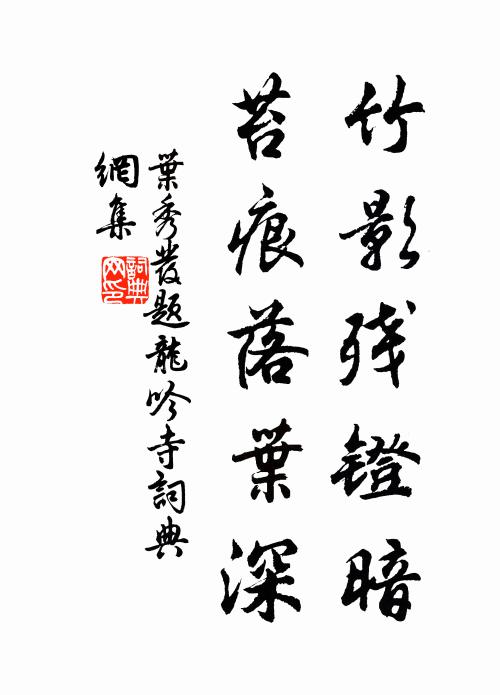 竹影残鐙暗
苔痕落葉深
葉秀發題龍吟寺詞典
網集
詞典
网印